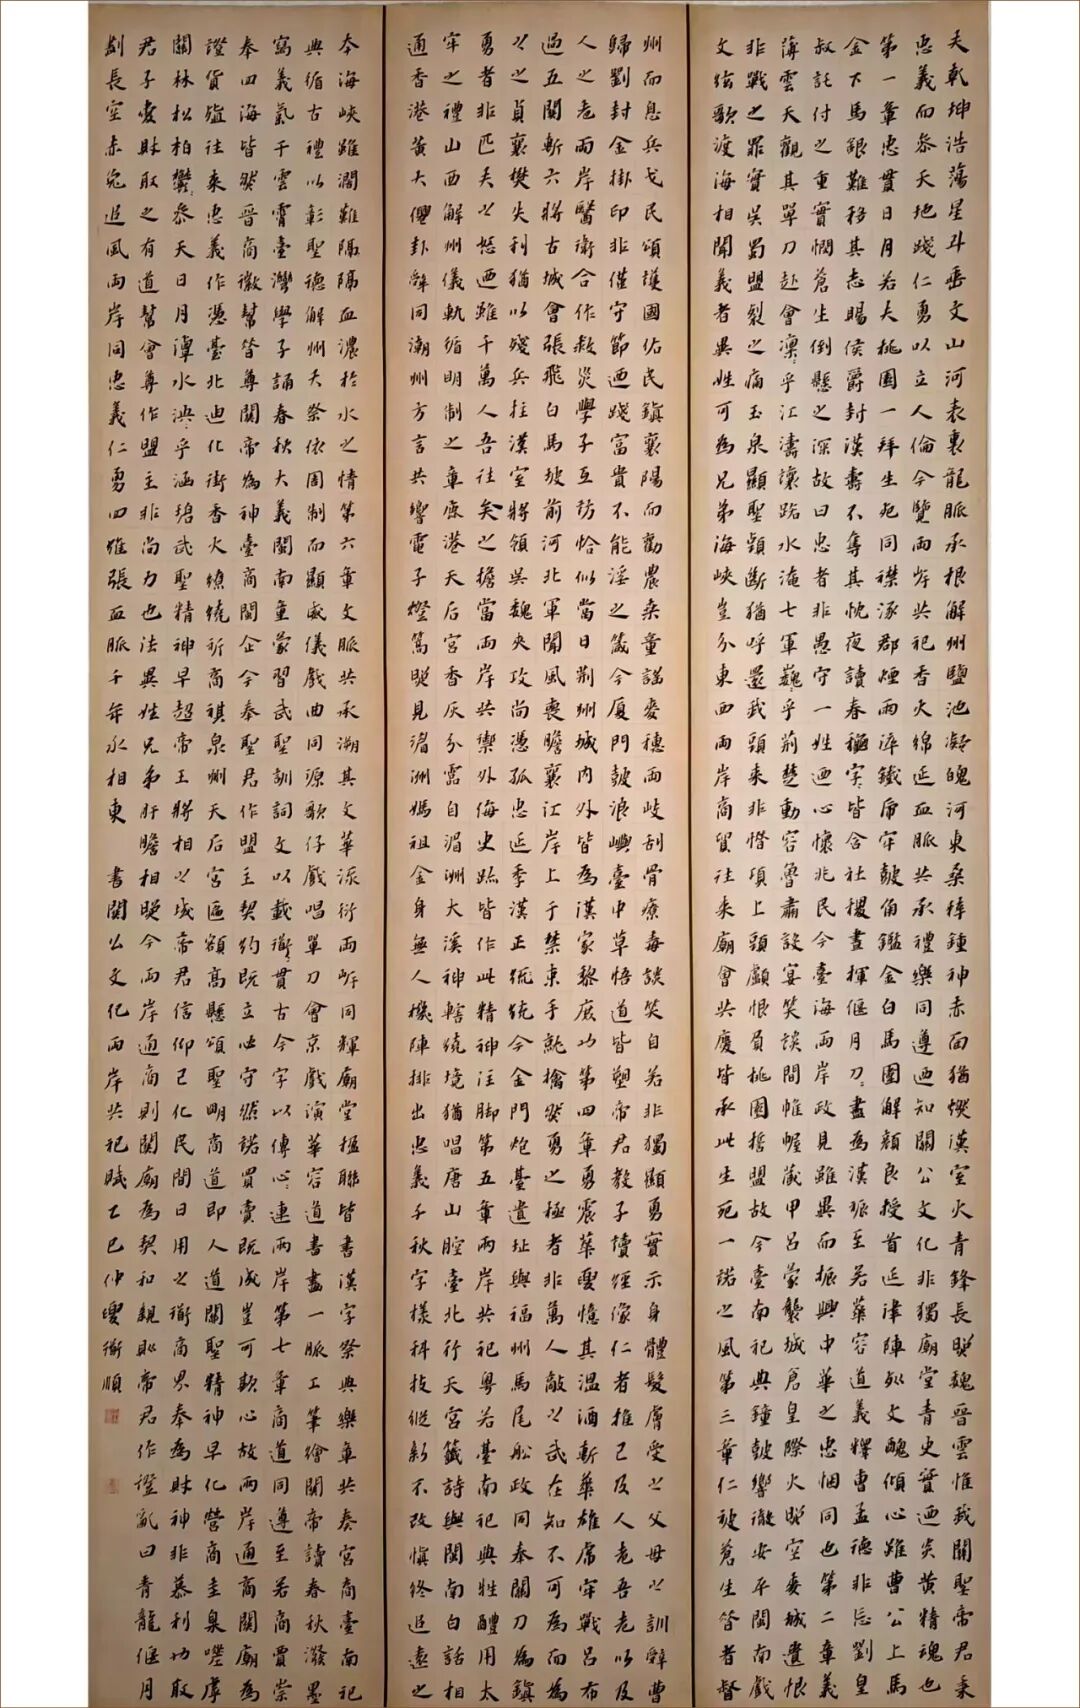 夫乾坤浩蕩星斗垂文山河表裏龍脈承根解州鹽池凝魄河東桑梓鍾神赤面猶燃漢室火青鋒長照魏晉雲惟我關聖帝君秉
忠義而參天地踐仁勇以立人倫今覽兩岸共祀香火綿延血脈共承禮樂同遵迺知關公文化非獨廟堂青史實迺炎黃精魂也
第一章忠貫日月若夫桃園一拜生死同襟涿郡煙雨淬鐵席牢皷角鑑金白馬圍解顏良授首延津陣列文醜傾心雖曹公上馬
金下馬銀難移其志賜侯爵封漢壽不奪其忱夜讀春秋字皆含社稷晝揮偃月刀盡為漢祚至若華容道義釋曹孟德非忘劉皇
叔託付之重實憫蒼生倒懸之深故曰忠者非愚守一姓迺心懷兆民今臺海兩岸政見雖異而振興中華之忠悃同也第二章義
薄雲天觀其單刀赴會凛乎江濤讓路水淹七軍巍乎荊楚動容魯肅設宴笑談間帷幄藏甲呂蒙襲城倉皇際火照空委城遺恨
非戰之罪實吳蜀盟裂之痛玉泉顯聖頭斷猶呼還我頭來非惜項上頭顱恨負桃園誓盟故今臺南祀典鐘皷響徹安平閩南戲
文絃歌渡海相聞義者異姓可為兄弟海峽豈分東西兩岸商貿往來廟會共慶皆承此生死一諾之風第三章仁被蒼生昝者督
州而息兵戈民頌護國佑民鎮襄陽而勸農桑童謠麥穗兩岐刮骨療毒談笑自若非獨顯勇實示身體髮膚受之父母之訓辭曹
歸劉封金掛印非僅守節迺踐富貴不能淫之箴今厦門皷浪嶼臺中草悟道皆塑帝君教子讀經像仁者推己及人老吾老以及
人之老兩岸醫衛合作救災學子互訪恰似當日荊州城內外皆為漢家黎庶功第四章勇震華夏憶其溫酒斬華雄席牢戰呂布
過五關斬六將古城會張飛白馬坡前河北軍聞風喪膽襄江岸上于禁束手就擒然勇之極者非萬人敵之武在知不可為而為
之之貞襄樊失利猶以殘兵拄漢室將領吳魏夾攻尚憑孤忠延季漢正統統今金門炮臺遺址與福州馬尾船政同奉關刀為鎮
勇者非匹夫之怒迺雖千萬人吾往矣之擔當兩岸共禦外侮史跡皆作此精神注脚第五章兩岸共祀粤若臺南祀典牲醴用太
牢之禮山西解州儀軌循明制之章鹿港天后宮香灰分靈自湄洲大溪神轄繞境猶唱唐山腔臺北行天宮籤詩與閩南白話相
通香港黃大僊卦辭同潮州方言共響電子燈籠照見湄洲媽祖金身無人機陣排出忠義千秋字樣科技縱新不改慎終追遠之
本海峽雖濶難隔隔血濃於水之情第六章文脈共承溯其文華派衍兩岍同輝廟堂楹聯皆書漢字祭典樂章共奏宮商臺南祀
典循古禮以彰聖德解州大祭依周制而顯威儀戲曲同源歌仔戲唱單刀會京戲演華容道書畫一脈工筆繪關帝讀春秋潑墨
寫義氣干雲霄臺灣學子誦春秋大義閩南童蒙習武聖訓詞文以載道貫古今字以傳心連兩岸第七章商道同遵至若商賈崇
奉四海皆然晉商徽幫昝尊關帝為神臺商閩企今奉聖君作盟主契約既立必守然諾買賣既成豈可欺心故兩岸通商關廟為
證貨殖往來忠義作憑臺北迪化街香火繚繞祈商祺泉州天后宮匾額高懸頌聖明商道即人道關聖精神早化營商圭臬嗟虖
關林松柏鬱參天日月潭水泱乎涵碧武聖精神早超帝王將相之域帝君信仰已化民間日用之衟商界奉為財神非慕利功取
君子愛財取之有道幫會尊作盟主非尚力也法異姓兄弟肝膽相照今兩岸通商則關廟為契和親則帝君作證亂曰青龍偃月
劃長空赤兔追風兩岸同忠義仁勇四維張血脈千年永相東 書關公文化兩岸共祀賦乙巳仲夏衞順